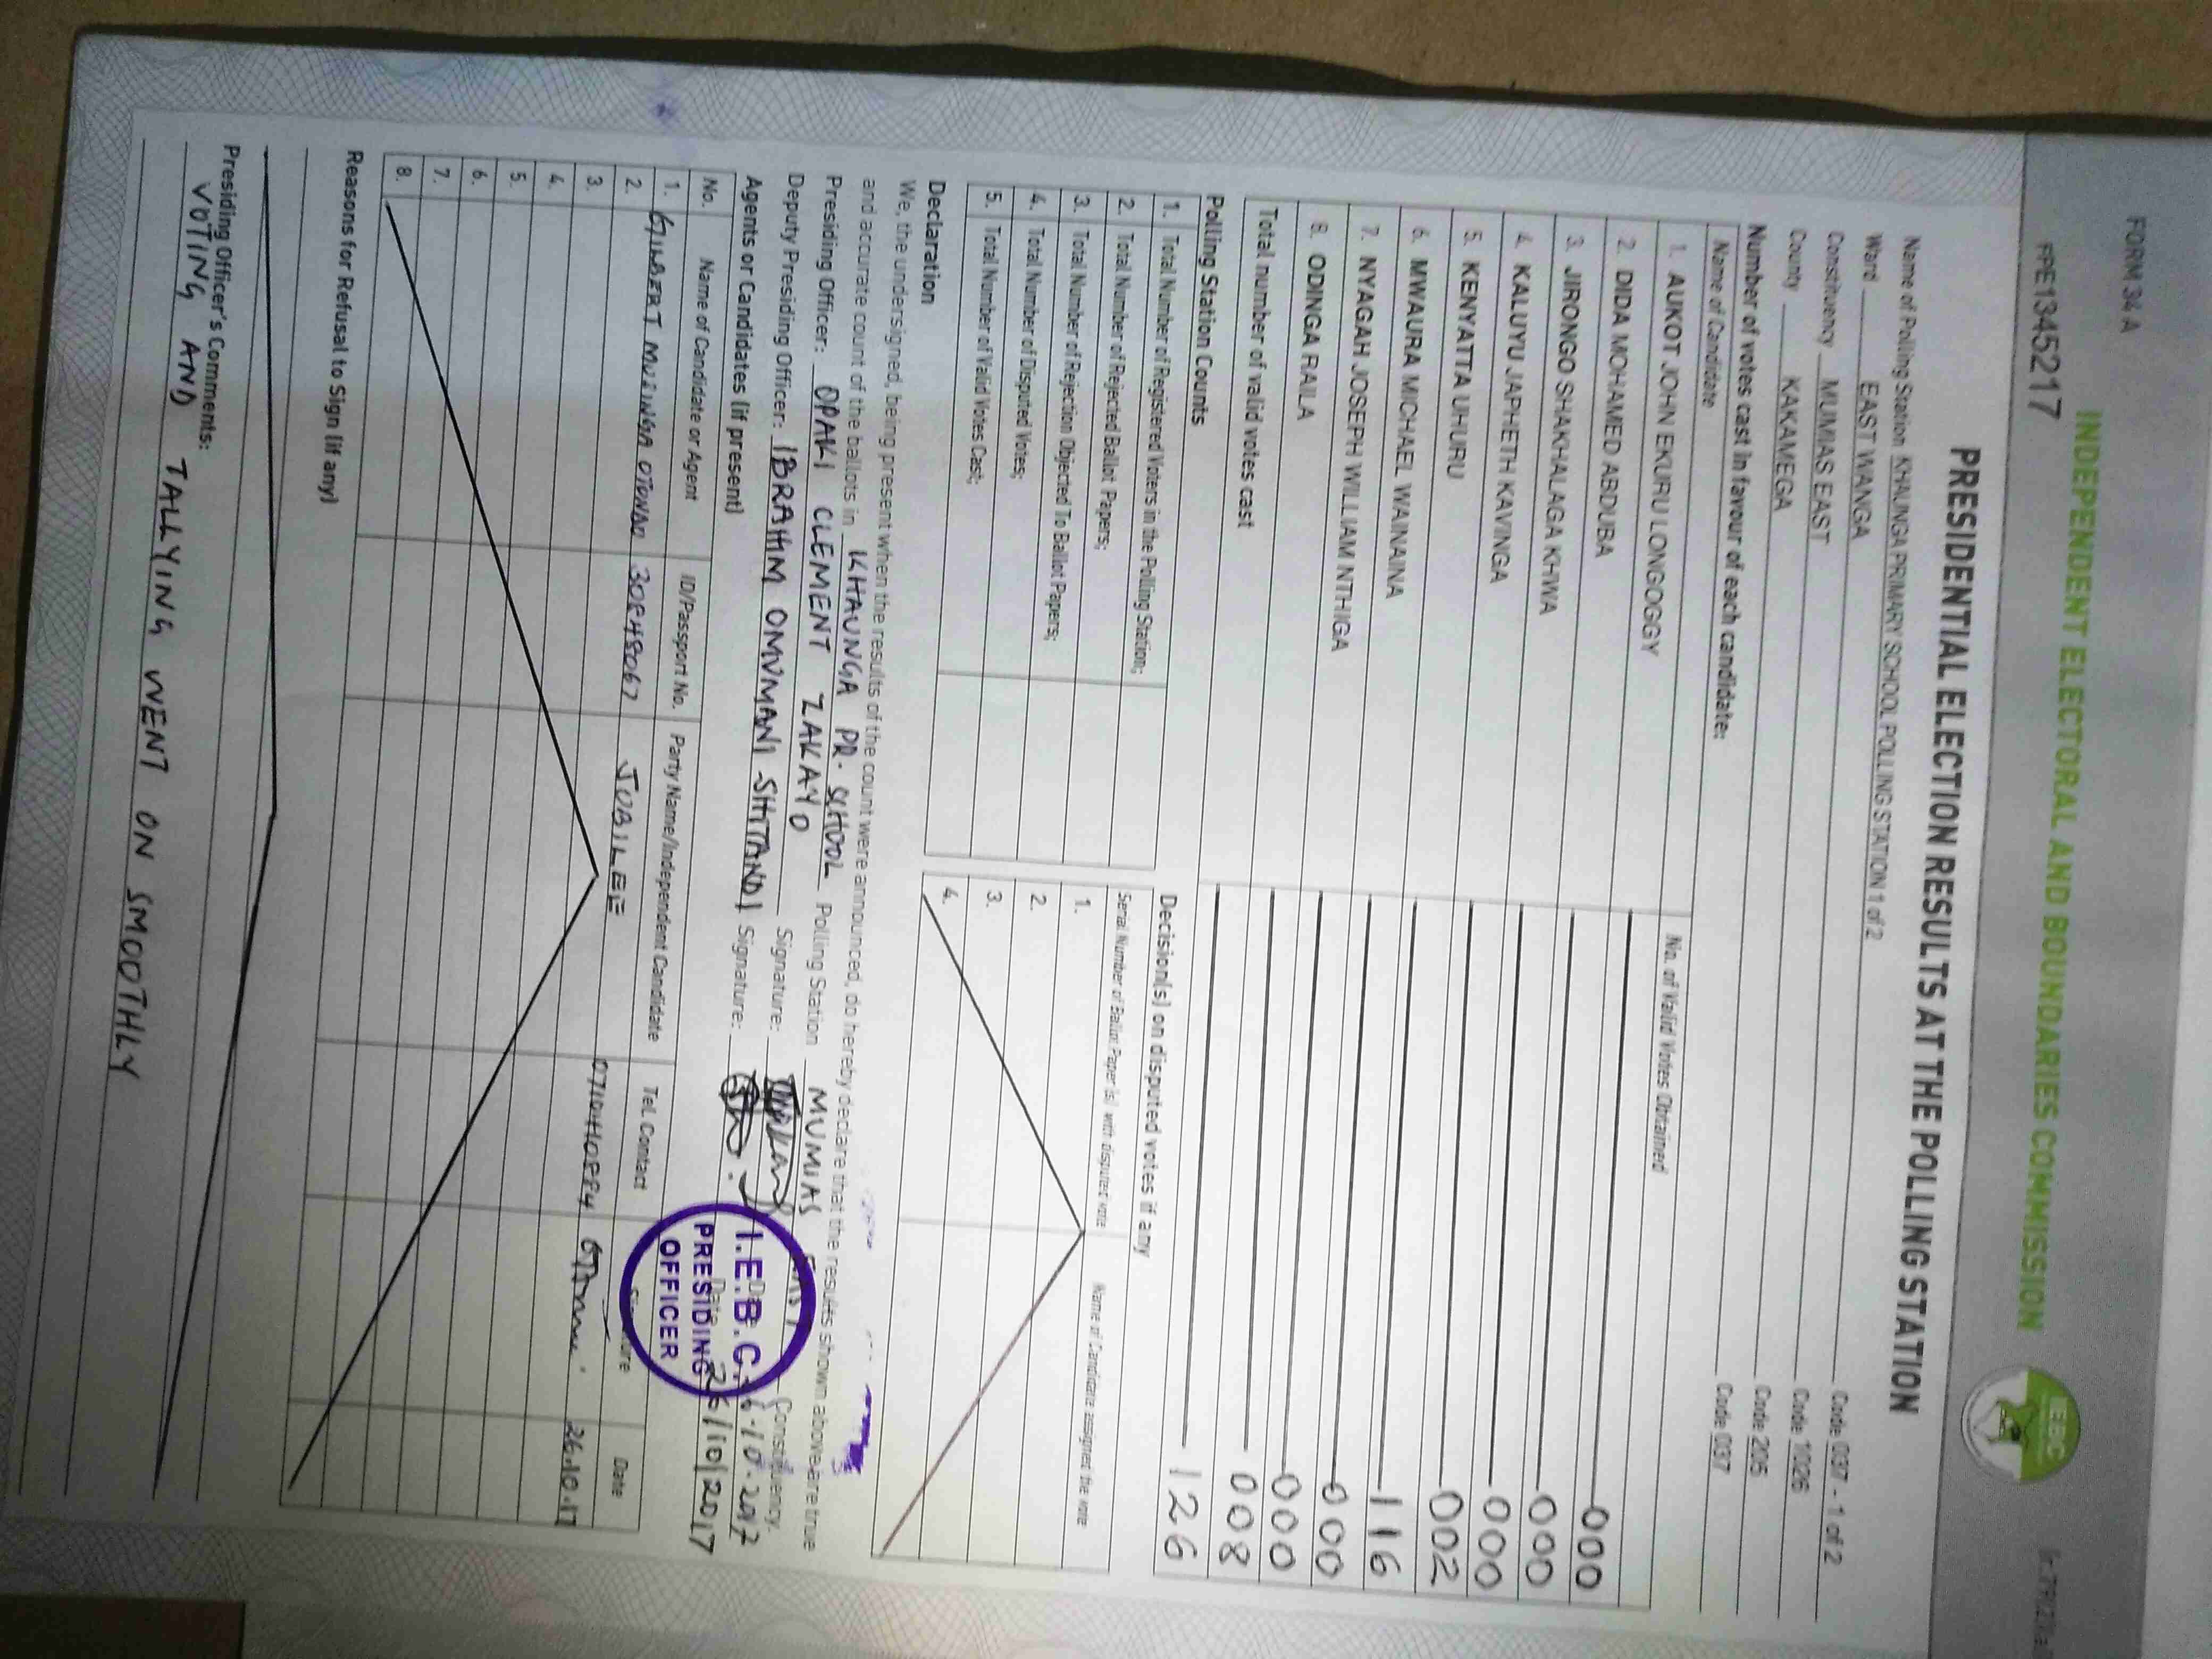 FORM 34 A
FPE1345217
INDEPENDENT ELECTORAL AND BOUNDARIES COMMISSION
IEBC
PRESIDENTIAL ELECTION RESULTS AT THE POLLING STATION
Name of Polling Station KHAUNGA PRIMARY SCHOOL POLLING STATION 1 of 2 Code 037 - 1 of 2
Ward EAST WANGA Code 1026
Constituency MUMIAS EAST Code 205
County KAKAMEGA Code 037
Number of votes cast in favour of each candidate:
Name of Candidate No. of Valid Votes Obtained
1. AUKOT JOHN EKURU LONGOGGY 000
2. DIDA MOHAMED ABDUBA 000
3. JIRONGO SHAKHALAGA KHWA 000
4. KALUYU JAPHETH KAVINGA 002
5. KENYATTA UHURU 116
6. MWAURA MICHAEL WAINAINA 000
7. NYAGAH JOSEPH WILLIAM NTHIGA 000
8. ODINGA RAILA 008
Total number of valid votes cast 126
Polling Station Counts
1. Total Number of Registered Voters in the Polling Station;
2. Total Number of Rejected Ballot Papers;
3. Total Number of Rejection Objected To Ballot Papers;
4. Total Number of Disputed Votes;
5. Total Number of Valid Votes Cast;
Decision(s) on disputed votes if any
Serial Number of Ballot Paper (s) with disputed vote Name of Candidate assigned the vote
1.
2.
3.
4.
Declaration
We, the undersigned, being present when the results of the count were announced, do hereby declare that the results shown above are true
and accurate count of the ballots in KHAUNGA PR. SCHOOL Polling Station MUMIAS EAST Constituency.
Presiding Officer: OPAKI CLEMENT ZAKAYO Signature: 26.10.2017
Deputy Presiding Officer: IBRAHIM OMUMANI SHITANDI Signature: Date 26/10/2017
I.E.B.C.
PRESIDING
OFFICER
Agents or Candidates (if present)
No. Name of Candidate or Agent ID/Passport No. Party Name/Independent Candidate Tel. Contact Signature Date
1. GILBERT OTONDO JUBILEE 26.10.17
2.
3.
4.
5.
6.
7.
8.
Reasons for Refusal to Sign (if any)
Presiding Officer's Comments:
VOTING AND TALLYING WENT ON SMOOTHLY